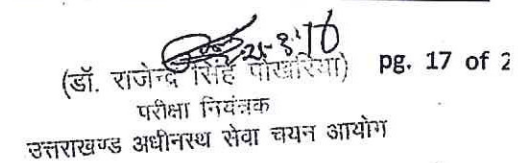 (डॉ. राजेन्द्र सिंह पोखरिया) pg. 17 of 2
परीक्षा नियंत्रक
उत्तराखण्ड अधीनस्थ सेवा चयन आयोग